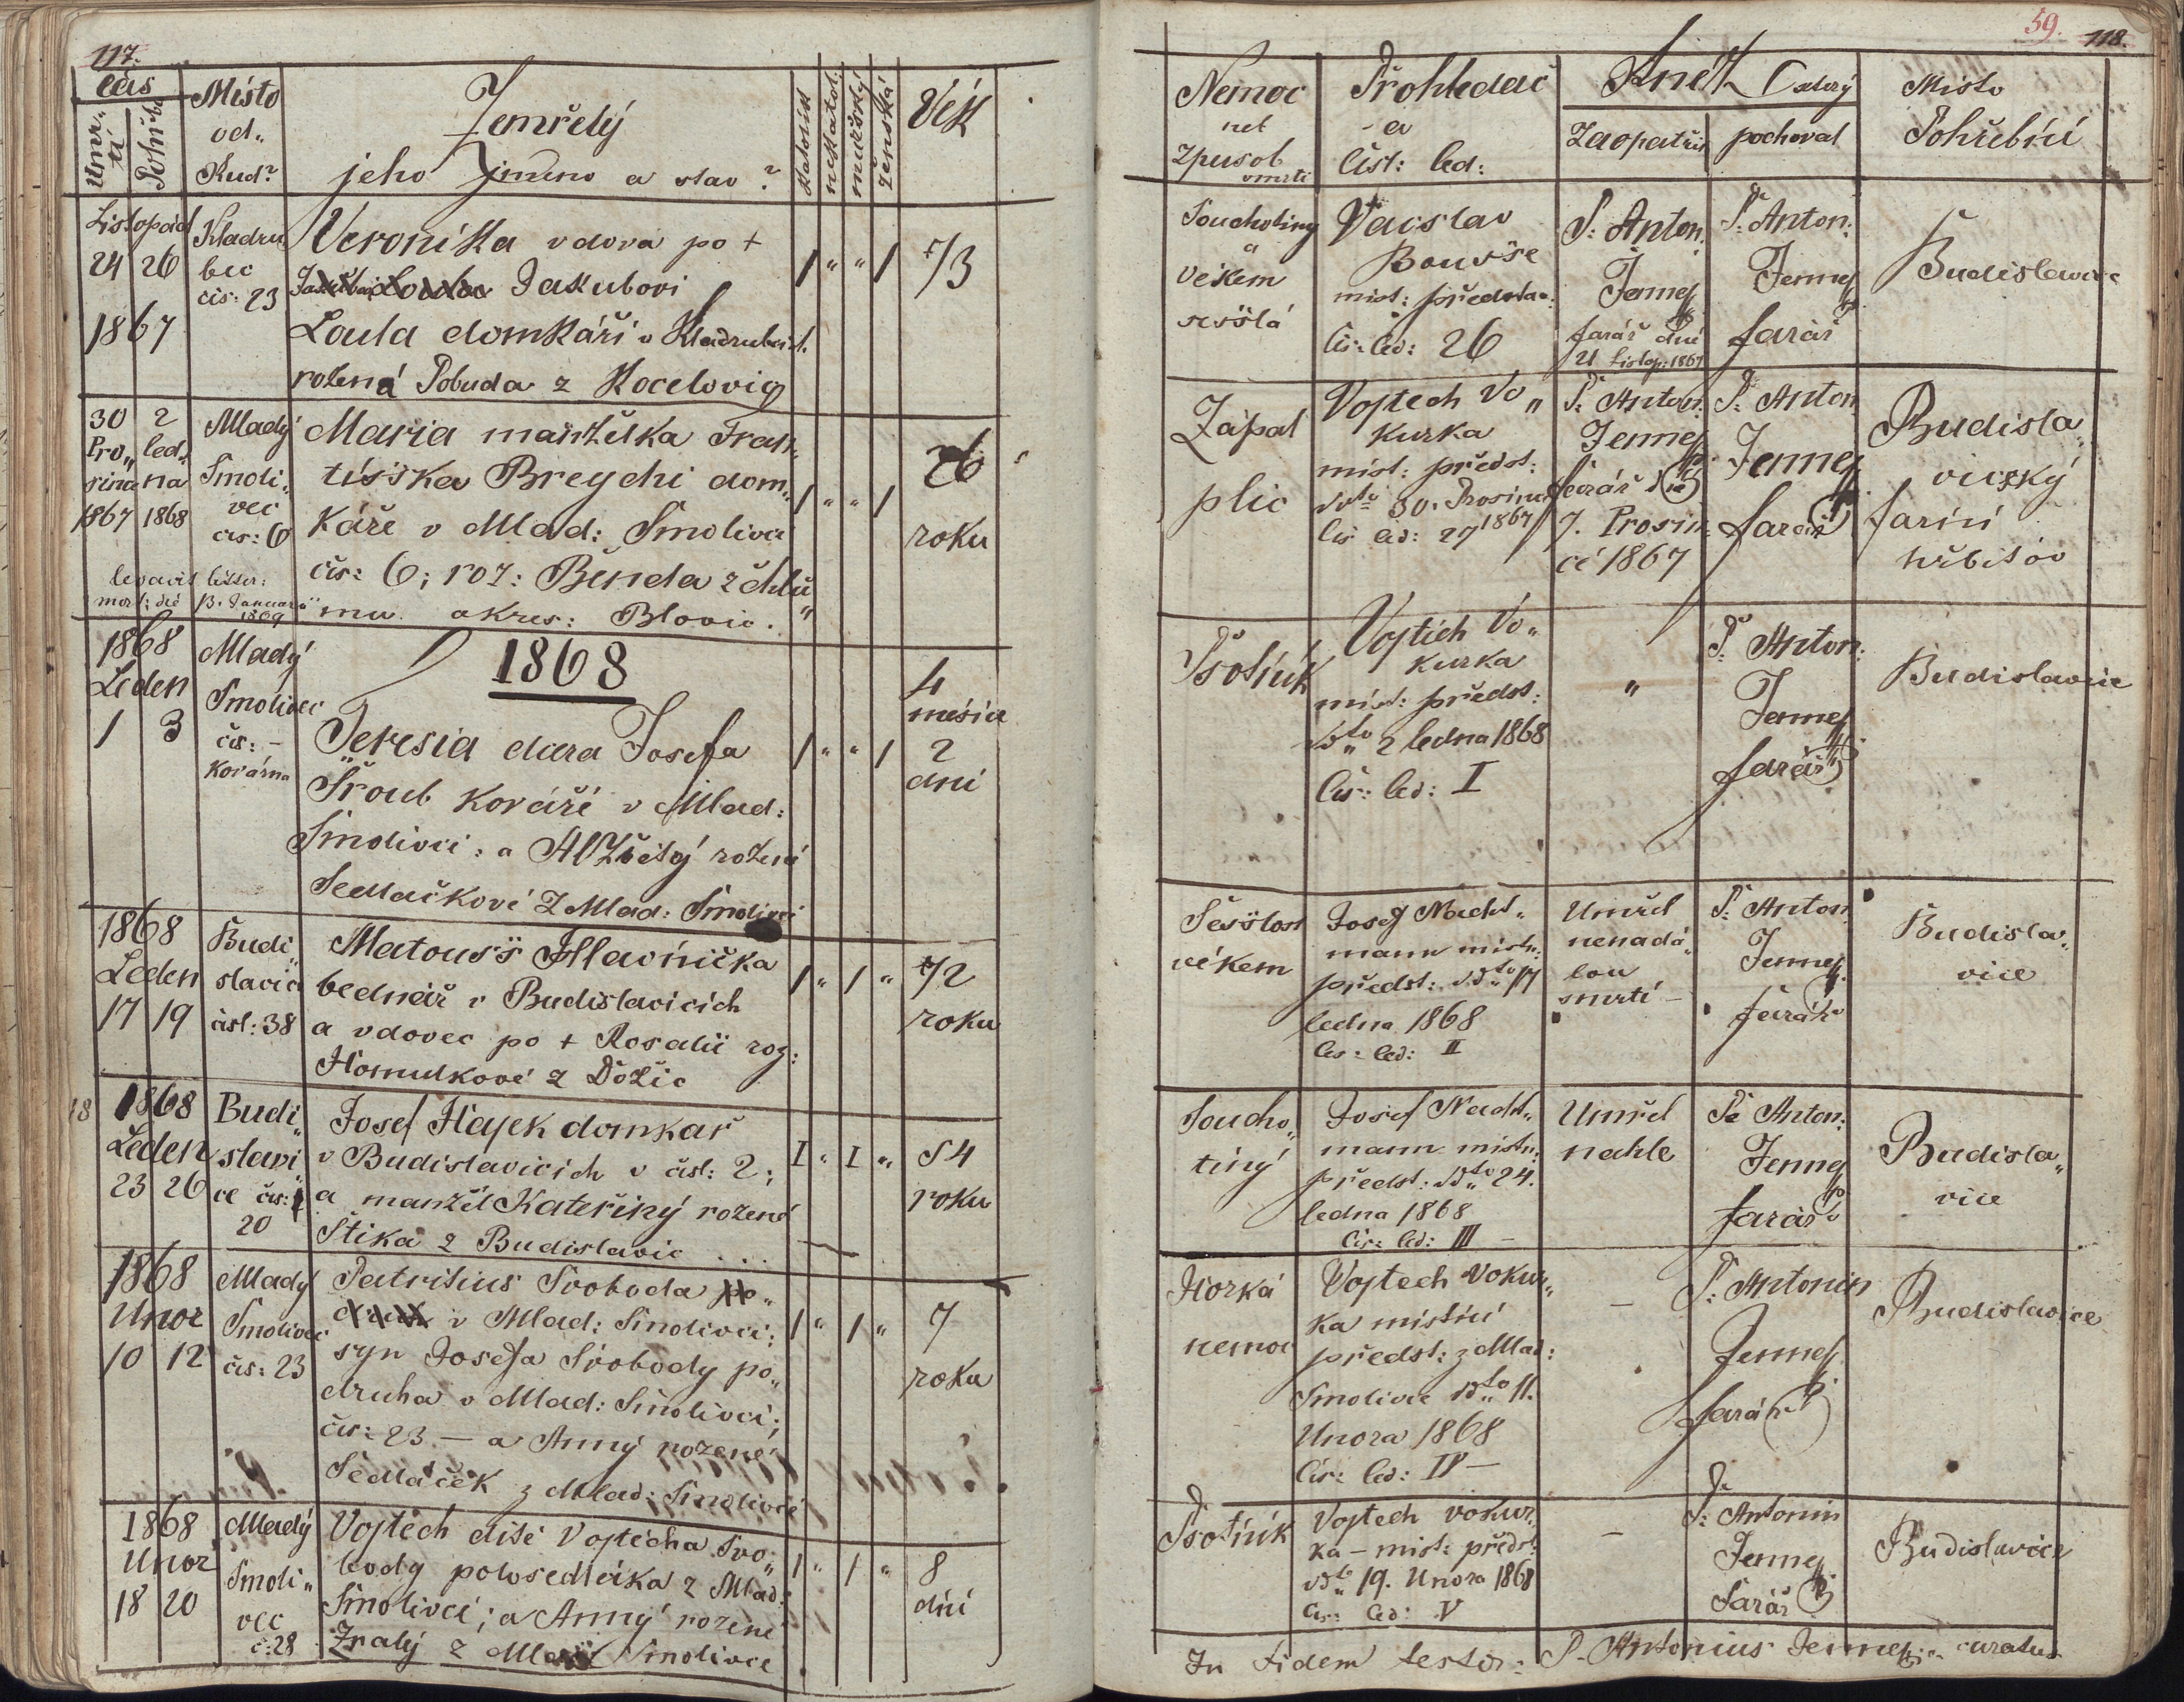 117.
čas
Umr„
tí
Pohřbu
Místo
od„
Kud?
Zemřelý
jeho jméno a stav?
Katolík
nekatol.
mužský
ženská
Věk
Listopad
24 26
1867
Kladru
bec
čis: 23
Veronika vdova po +
Jakubovi
Loula domkáři v Kladrubci
rožená Pobuda z Kocelovic
1 „ „ 1
73
30 2
Pro„ led„
since na
1867 1868
Mladý
Smoli„
vec
čis: 6
Maria manželka Fran„
tiška Breychi dom„
káře v Mlad: Smolivci
čis: 6; roz: Benda z Chlu„
mu okres: Blovic.
1 „ „ 1
26
roku
levavit litter:
mort: die 13. Januarii
1869
1868
Leden
1 3
Mladý
Smolivec
čis: –
Kovárna
1868
Teresia dcera Josefa
Šroub Kováři v Mlad:
Smolivci: a Alžběty rožené
Sedlačkové z Mlad: Smolivci
1 „ „ 1
4
mesice
2
dni
1868
Leden
17 19
Budi„
slavice
čisl: 38
Matouš Hlavnička
bednář v Budislavicich
a vdovec po + Rosalii roz:
Homulkové z Dožic
1 „ 1 „
72
roku
18
1868
Leden
23 26
Budi„
slavi„
ce čis:
20
Josef Hajek domkař
v Budislavicich v čisl: 2;
a manžel Kateřiný rožené
Štika z Budislavic . . .
I „ I „
54
roku
1868
Unor
10 12
Mladý
Smolivec
čis: 23
Patritius Svoboda
v Mlad: Smolivci;
syn Josefa Svobody po„
druha v Mlad: Smolivci;
čis: 23 – a Anný rozené
Sedláček z Mlad: Smolivce
1 „ 1 „
7
roku
1868
Unor
18 20
Mladý
Smoli„
vec
č: 28
Vojtěch dítě Vojtěcha Svo„
body polosedláka z Mlad:
Smolivci; a Anný rozené
Znalý z Mlad Smolivce
1 „ 1 „
8
dní
59.
118.
Nemoc
neb
zpusob
smrti
Prohledač
a
čisl: led:
Kněz který
zaopatřil
pochoval
Místo
Pohřební
Souchotiny
a
věkem
sešlá
Vacslav
Bouvše
mist: předsta„
čis: led: 26
P: Anton:
Jenney
farář dne
21 Listop: 1867
P: Anton:
Jenney
farář
Budislavice
Zápal
plic
Vojtech Vo„
kurka
mist: předst:
ddto 30. Prosince
1867
čis led: 27
P: Anton:
Jenney
farář dne
7. Prosin
ce 1867
P: Anton
Jenney
farář
Budisla„
vický
farní
hřbitov
Psotník
Vojtěch Vo„
kurka
mist: předst:
ddto 2 ledna 1868
čis: led: I
„
P: Anton:
Jenney
farář
Budislavice
Sešlost
věkem
Josef Nacht„
mann mistn:
předst: ddto 17
ledna 1868
čis: led: II
Umřel
nenadá„
lou
smrtí –
P: Anton
Jenney
farář
Budisla„
vice
Soucho„
tiný
Josef Nacht„
mann mistn:
předst: ddto 24.
ledna 1868
čis: led: III –
Umřel
nahle
P: Anton:
Jenney
farář
Budisla„
vice
Horká
nemoc
Vojtech Vokur„
ka mistní
předst: z Mlad:
Smolivce ddto 11.
Unora 1868
čis: led: IV –
–
P: Antonin
Jenney
farář
Budislavice
Psotník
Vojtech vokur„
ka – mist: předst:
ddto 19. Unora 1868
čis: led: V
–
P: Antonin
Jenney
Farář
Budislavice
In fidem testor: P. Antonius Jenney curatus